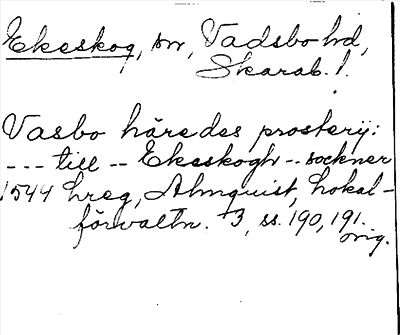 Ekeskog, sn, Vadsbo hd,
Skarab. l.
Vasbo häredes prosterij:
--- till -- Ekeskogh -- sockner
1544 hreg, Almquist, Lokal-
förvaltn. 3, ss. 190, 191.
orig.